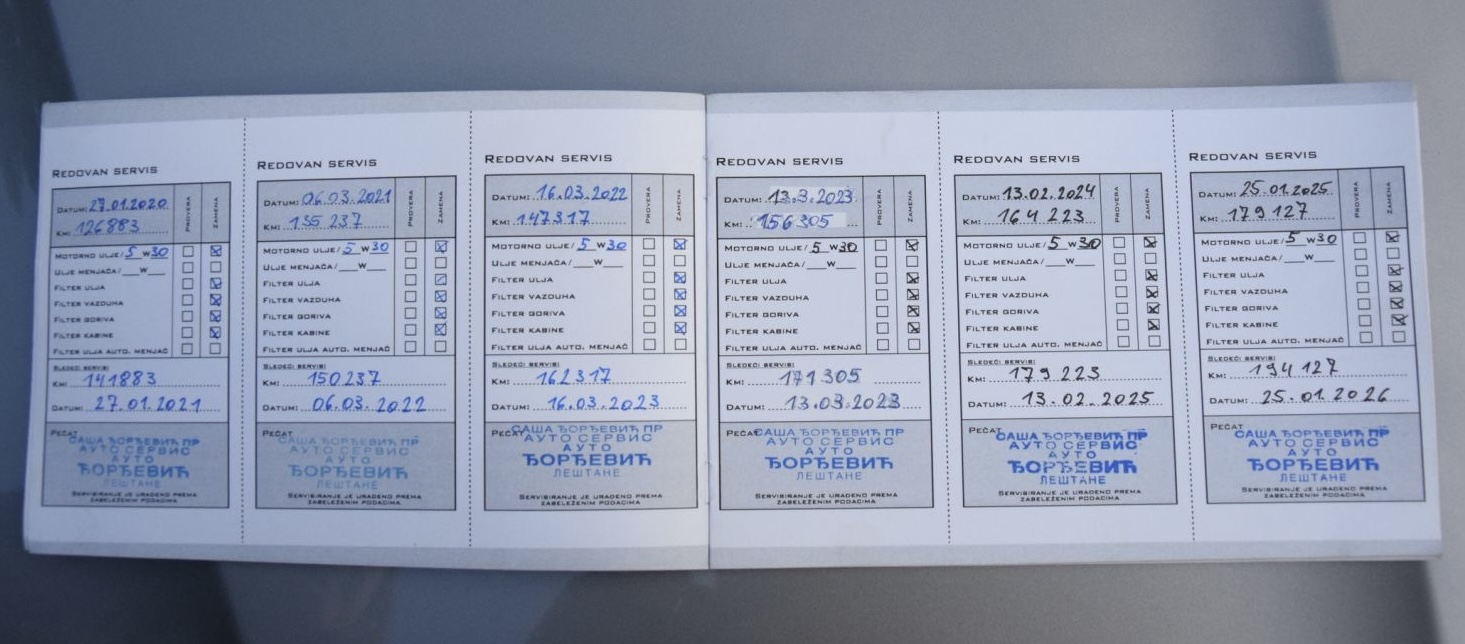 REDOVAN SERVIS
DATUM: 27.01.2020
KM: 126883
PROVERA
ZAMENA
MOTORNO ULJE/ 5 W 30
ULJE MENJAČA/ ___W___
FILTER ULJA
FILTER VAZDUHA
FILTER GORIVA
FILTER KABINE
FILTER ULJA AUTO. MENJAČ
SLEDEĆI SERVIS:
KM: 141883
DATUM: 27.01.2021
PEČAT
САША ЂОРЂЕВИЋ ПР
АУТО СЕРВИС
АУТО
ЂОРЂЕВИЋ
ЛЕШТАНЕ
SERVISIRANJE JE URAĐENO PREMA
ZABELEŽENIM PODACIMA
REDOVAN SERVIS
DATUM: 06.03.2021
KM: 135 237
PROVERA
ZAMENA
MOTORNO ULJE/ 5 W 30
ULJE MENJAČA/ ___W___
FILTER ULJA
FILTER VAZDUHA
FILTER GORIVA
FILTER KABINE
FILTER ULJA AUTO. MENJAČ
SLEDEĆI SERVIS:
KM: 150237
DATUM: 06.03.2022
PEČAT
САША ЂОРЂЕВИЋ ПР
АУТО СЕРВИС
АУТО
ЂОРЂЕВИЋ
ЛЕШТАНЕ
SERVISIRANJE JE URAĐENO PREMA
ZABELEŽENIM PODACIMA
REDOVAN SERVIS
DATUM: 16.03.2022
KM: 147317
PROVERA
ZAMENA
MOTORNO ULJE/ 5 W 30
ULJE MENJAČA/ ___W___
FILTER ULJA
FILTER VAZDUHA
FILTER GORIVA
FILTER KABINE
FILTER ULJA AUTO. MENJAČ
SLEDEĆI SERVIS:
KM: 162317
DATUM: 16.03.2023
PEČAT
САША ЂОРЂЕВИЋ ПР
АУТО СЕРВИС
АУТО
ЂОРЂЕВИЋ
ЛЕШТАНЕ
SERVISIRANJE JE URAĐENO PREMA
ZABELEŽENIM PODACIMA
REDOVAN SERVIS
DATUM: 13.3.2023
KM: 156305
PROVERA
ZAMENA
MOTORNO ULJE/ 5 W 30
ULJE MENJAČA/ ___W___
FILTER ULJA
FILTER VAZDUHA
FILTER GORIVA
FILTER KABINE
FILTER ULJA AUTO. MENJAČ
SLEDEĆI SERVIS:
KM: 171305
DATUM: 13.03.2023
PEČAT
САША ЂОРЂЕВИЋ ПР
АУТО СЕРВИС
АУТО
ЂОРЂЕВИЋ
ЛЕШТАНЕ
SERVISIRANJE JE URAĐENO PREMA
ZABELEŽENIM PODACIMA
REDOVAN SERVIS
DATUM: 13.02.2024
KM: 164 223
PROVERA
ZAMENA
MOTORNO ULJE/ 5 W 30
ULJE MENJAČA/ ___W___
FILTER ULJA
FILTER VAZDUHA
FILTER GORIVA
FILTER KABINE
FILTER ULJA AUTO. MENJAČ
SLEDEĆI SERVIS:
KM: 179 223
DATUM: 13.02.2025
PEČAT
САША ЂОРЂЕВИЋ ПР
АУТО СЕРВИС
АУТО
ЂОРЂЕВИЋ
ЛЕШТАНЕ
SERVISIRANJE JE URAĐENO PREMA
ZABELEŽENIM PODACIMA
REDOVAN SERVIS
DATUM: 25.01.2025
KM: 179 127
PROVERA
ZAMENA
MOTORNO ULJE/ 5 W 30
ULJE MENJAČA/ ___W___
FILTER ULJA
FILTER VAZDUHA
FILTER GORIVA
FILTER KABINE
FILTER ULJA AUTO. MENJAČ
SLEDEĆI SERVIS:
KM: 194 127
DATUM: 25.01.2026
PEČAT
САША ЂОРЂЕВИЋ ПР
АУТО СЕРВИС
АУТО
ЂОРЂЕВИЋ
ЛЕШТАНЕ
SERVISIRANJE JE URAĐENO PREMA
ZABELEŽENIM PODACIMA